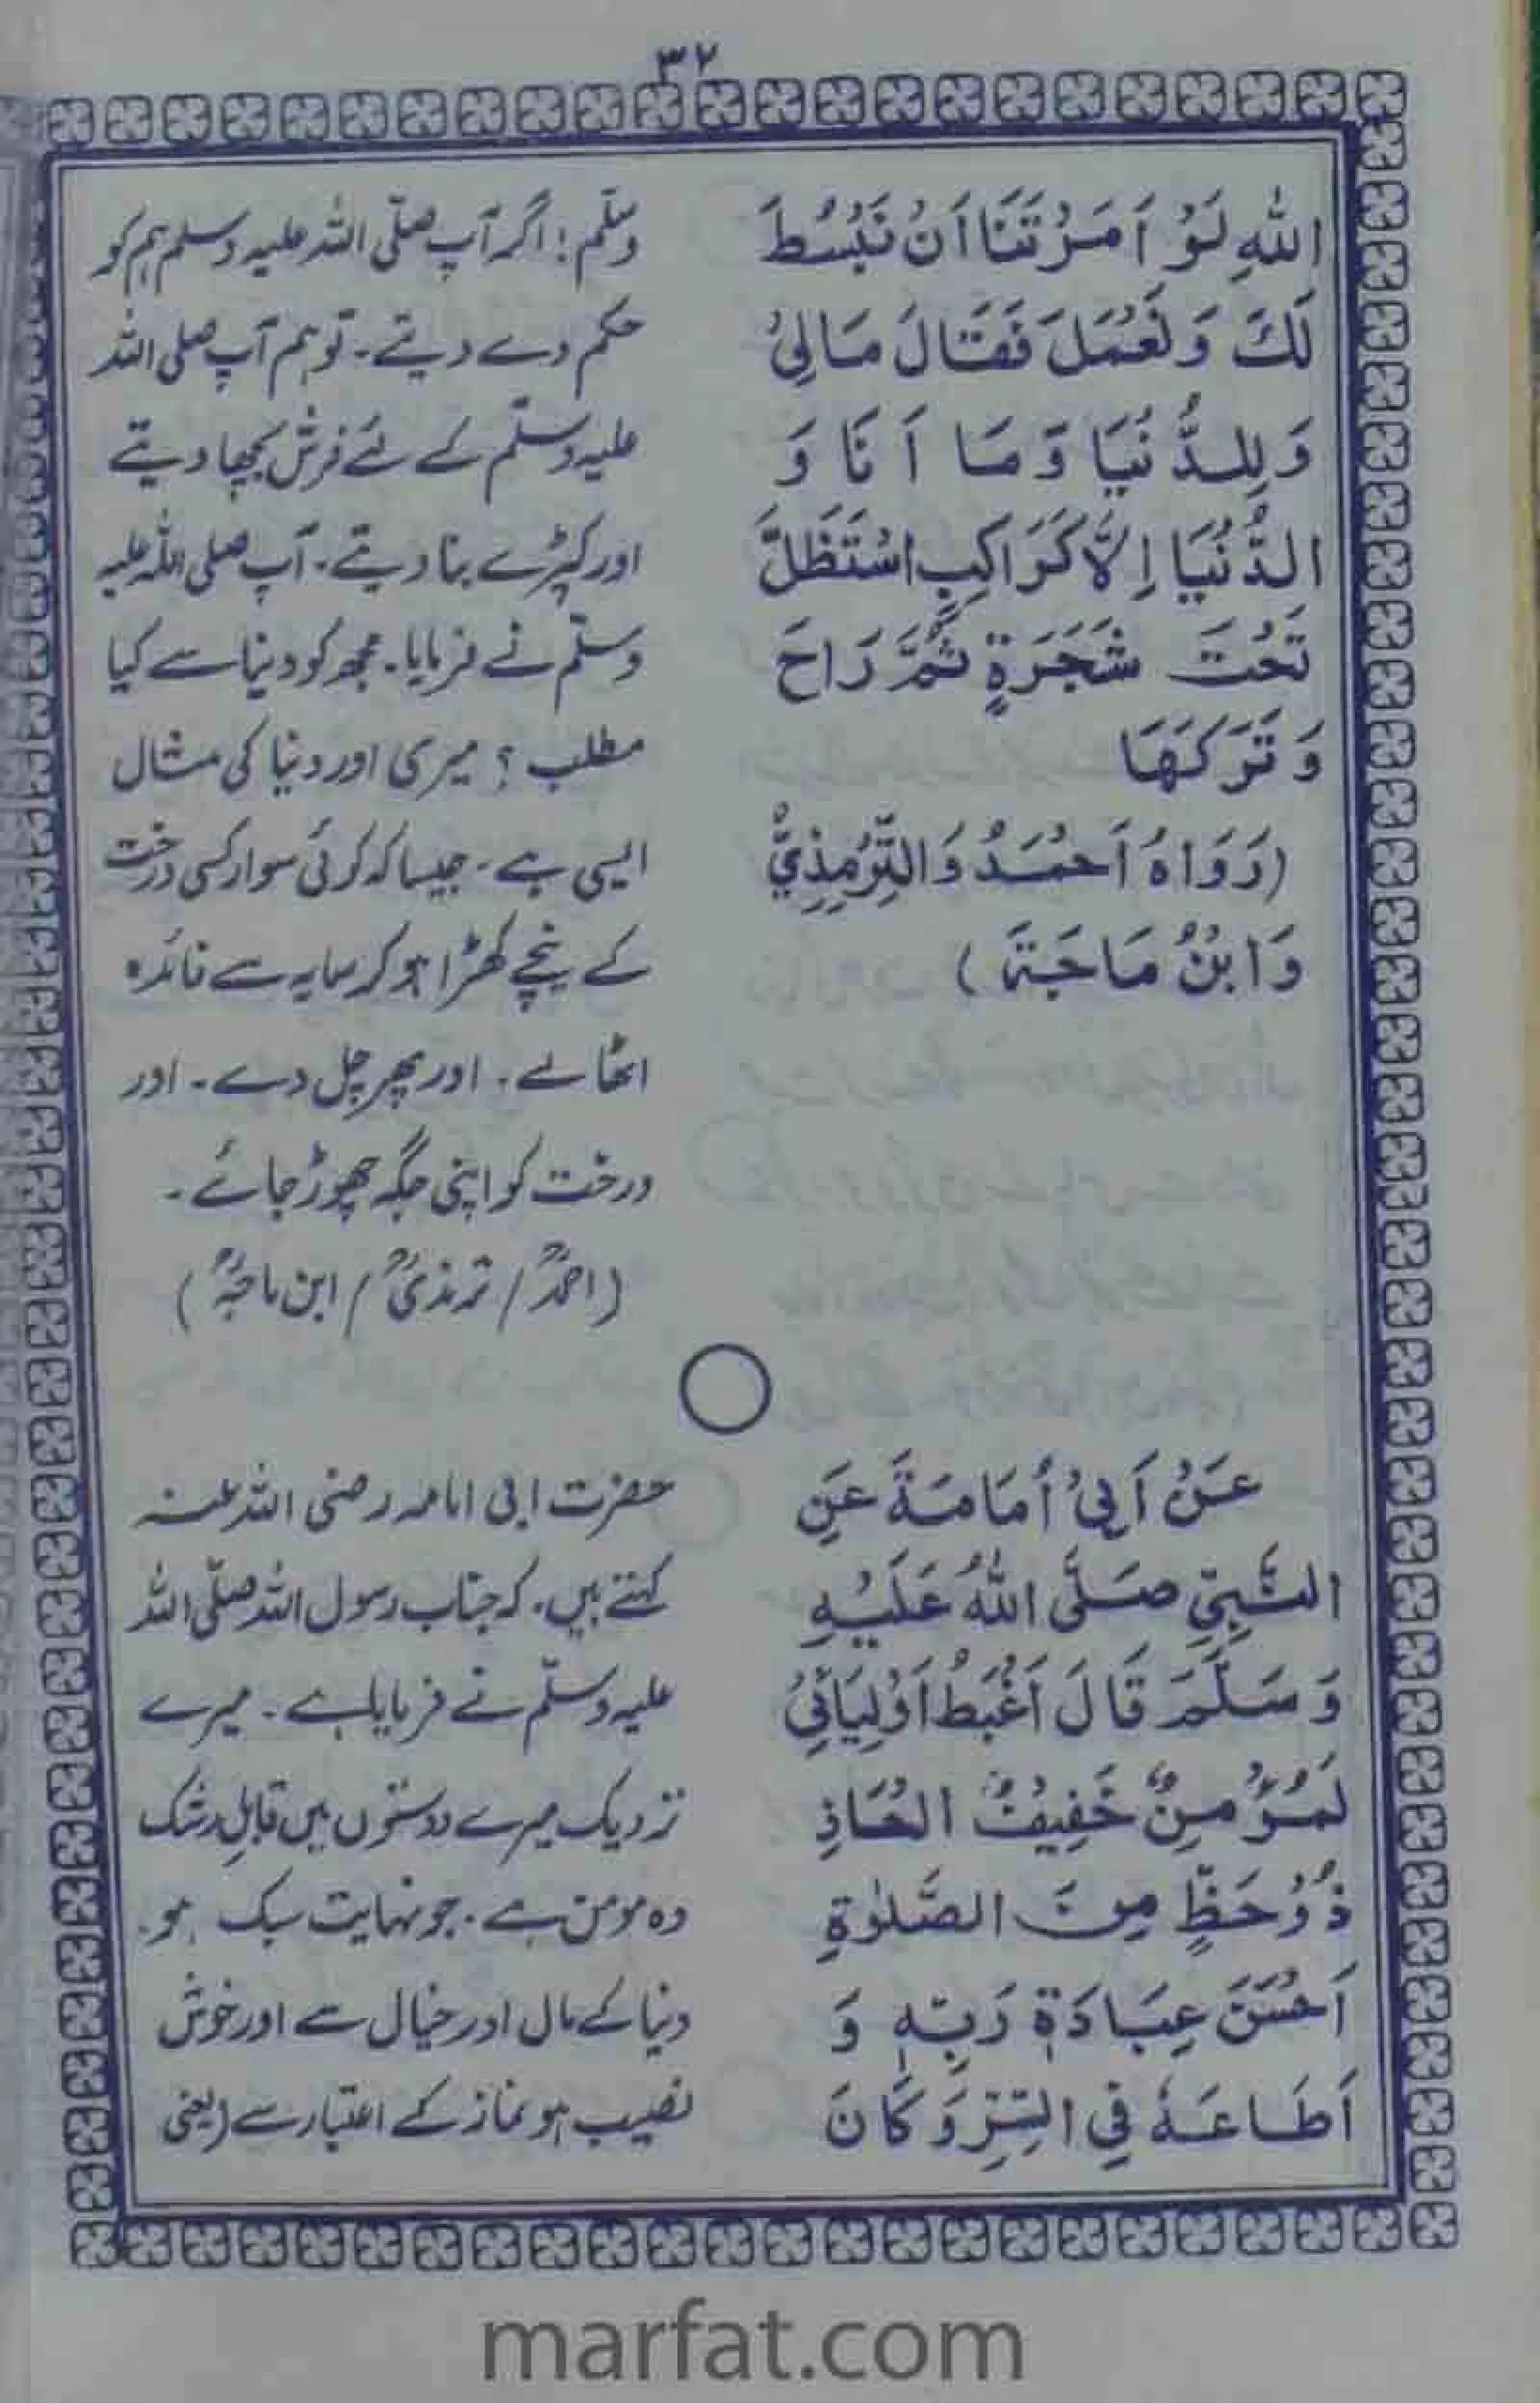 ۳۲
اللهِ لَوْ اَمَرْتَنَا اَنْ نَبْسُطَ
لَكَ وَنَعْمَلَ فَقَالَ مَالِيْ
وَلِلدُّنْيَا وَمَا اَنَا وَ
الدُّنْيَا اِلَّا كَرَاكِبٍ اسْتَظَلَّ
تَحْتَ شَجَرَةٍ ثُمَّ رَاحَ
وَتَرَكَهَا
(رَوَاهُ اَحْمَدُ وَالتِّرْمِذِيُّ
وَابْنُ مَاجَةَ)
وسلّم! اگر آپ صلّی اللہ علیہ وسلم ہم کو
حکم دے دیتے۔ تو ہم آپ صلی اللہ
علیہ وسلّم کے لئے فرش بچھا دیتے
اور کپڑے بنا دیتے۔ آپ صلی اللہ علیہ
وسلّم نے فرمایا۔ مجھ کو دنیا سے کیا
مطلب؟ میری اور دنیا کی مثال
ایسی ہے۔ جیسا کہ کوئی سوار کسی درخت
کے نیچے کھڑا ہو کر سایہ سے فائدہ
اٹھا لے۔ اور پھر چل دے۔ اور
درخت کو اپنی جگہ چھوڑ جائے۔
(احمدؒ / ترمذیؒ / ابن ماجہؒ)
عَنْ اَبِيْ اُمَامَةَ عَنِ
النَّبِيِّ صَلَّى اللهُ عَلَيْهِ
وَسَلَّمَ قَالَ اَغْبَطُ اَوْلِيَائِيْ
لَمُؤْمِنٌ خَفِيْفُ الْحَاذِ
ذُوْ حَظٍّ مِنَ الصَّلٰوةِ
اَحْسَنَ عِبَادَةَ رَبِّهٖ وَ
اَطَاعَهٗ فِي السِّرِّ وَكَانَ
حضرت ابی امامہ رضی اللہ عنہ
کہتے ہیں۔ کہ جناب رسول اللہ صلّی اللہ
علیہ وسلّم نے فرمایا ہے۔ میرے
نزدیک میرے دوستوں میں قابلِ رشک
وہ مومن ہے۔ جو نہایت سبک ہو۔
دنیا کے مال اور خیال سے اور خوش
نصیب ہو نماز کے اعتبار سے (یعنی
marfat.com